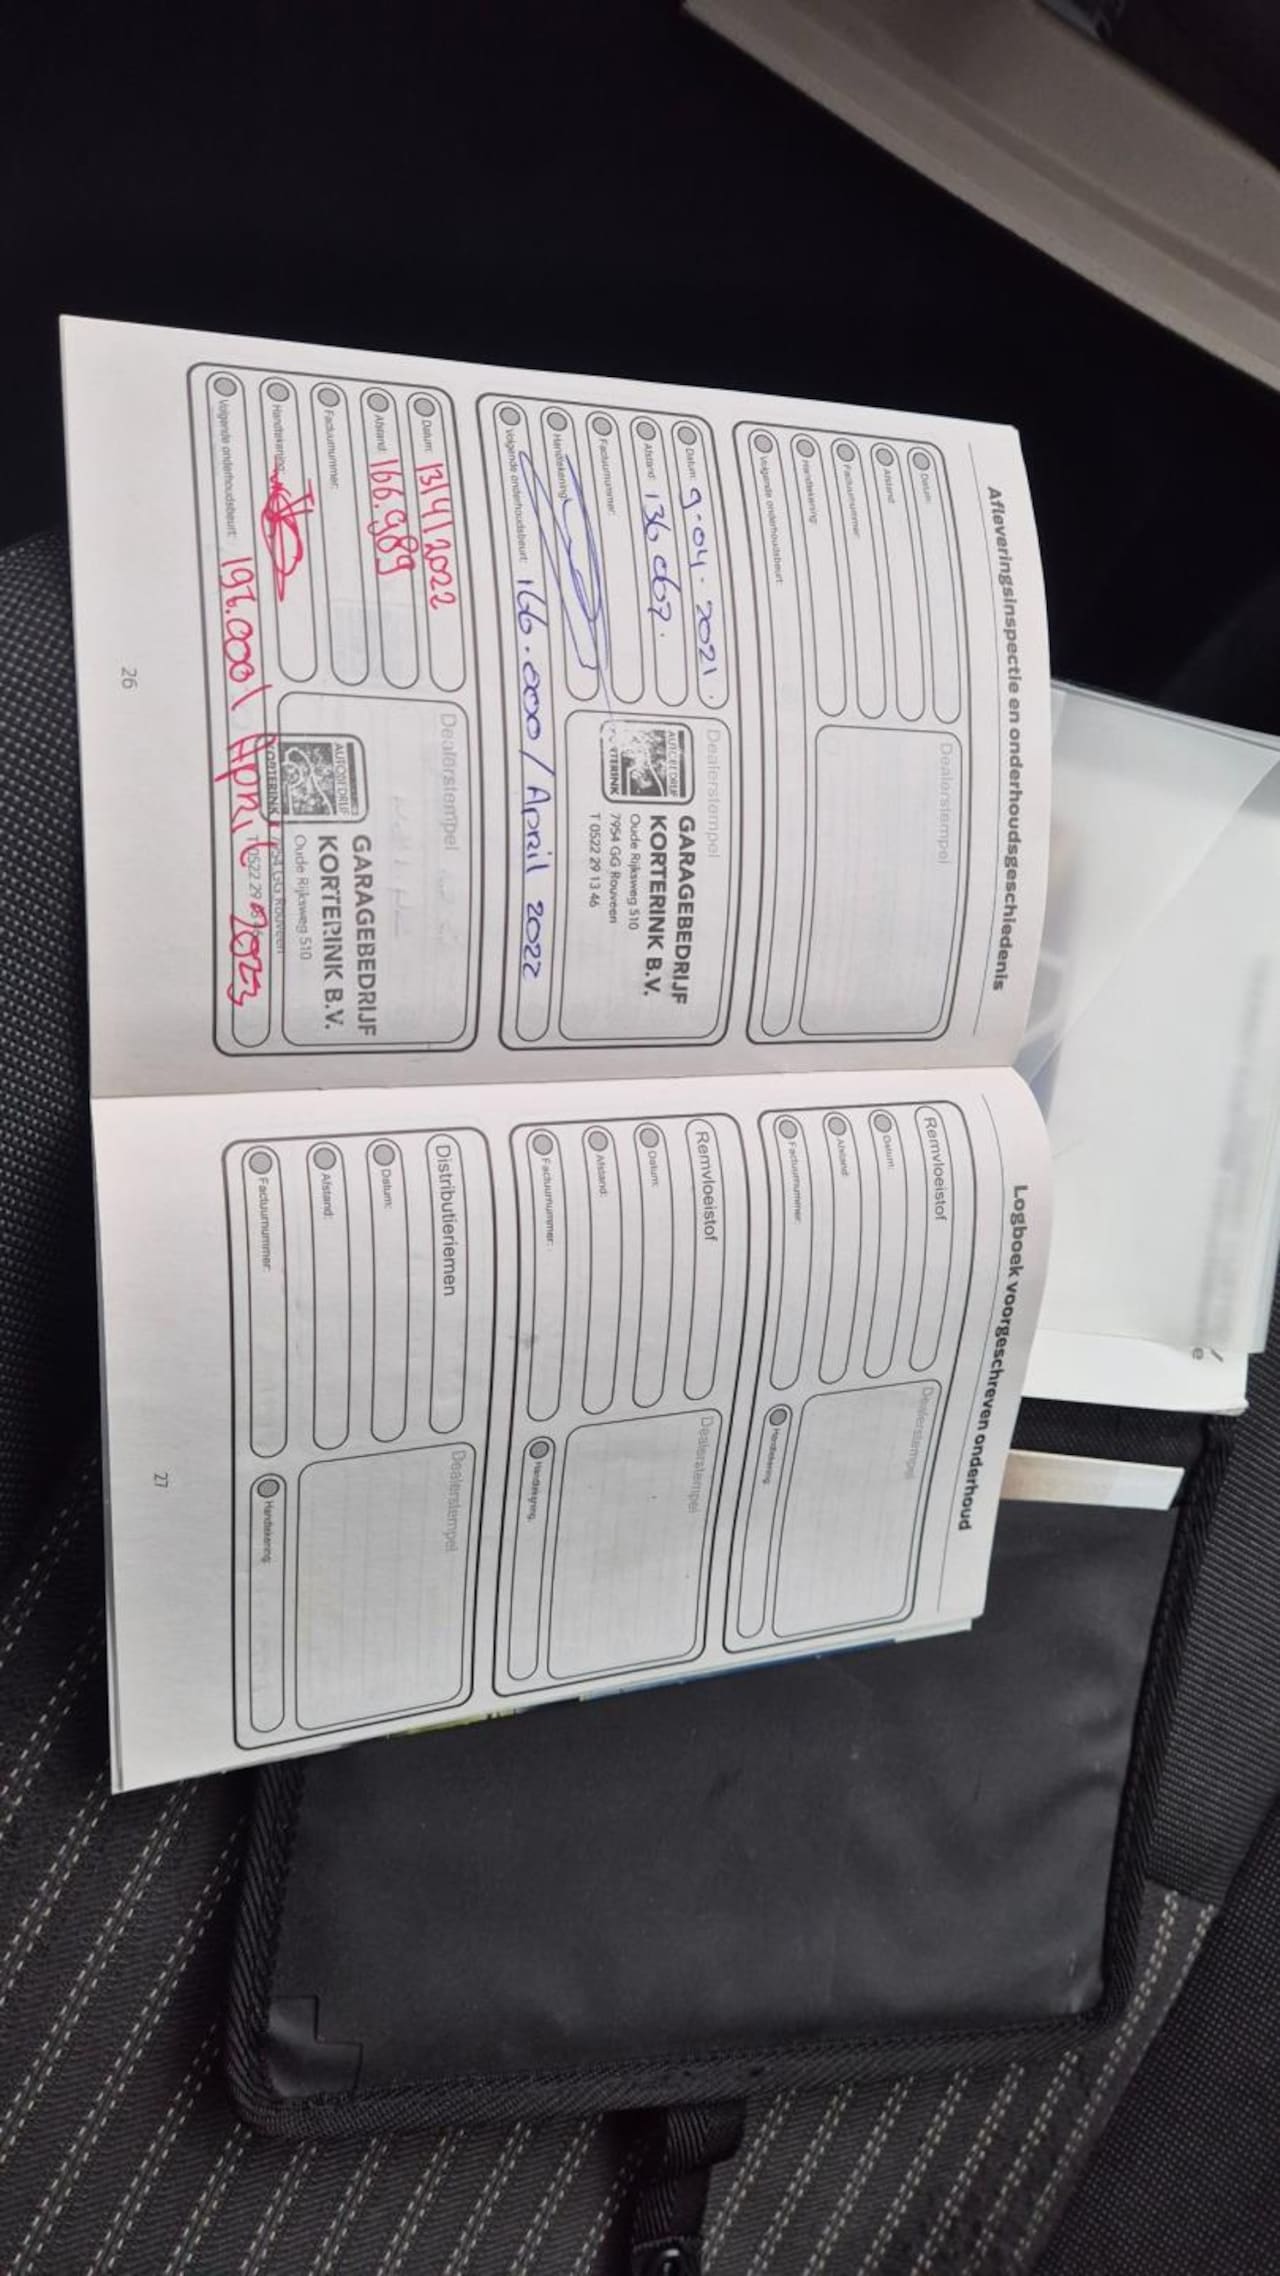 Afleveringsinspectie en onderhoudsgeschiedenis
Datum:
Afstand:
Factuurnummer:
Handtekening:
Volgende onderhoudsbeurt:
Dealerstempel
Datum: 9-04-2021.
Afstand: 136.067.
Factuurnummer:
Handtekening:
Volgende onderhoudsbeurt: 166.000/April 2022
Dealerstempel
AUTOBEDRIJF
KORTERINK
GARAGEBEDRIJF
KORTERINK B.V.
Oude Rijksweg 510
7954 GG Rouveen
T 0522 29 13 46
Datum: 13/4/2022
Afstand: 166.989
Factuurnummer:
Handtekening:
Volgende onderhoudsbeurt: 196.000/ April 2023
Dealerstempel
AUTOBEDRIJF
KORTERINK
GARAGEBEDRIJF
KORTERINK B.V.
Oude Rijksweg 510
7954 GG Rouveen
T 0522 29
26
Logboek voorgeschreven onderhoud
Remvloeistof
Datum:
Afstand:
Factuurnummer:
Dealerstempel
Handtekening:
Remvloeistof
Datum:
Afstand:
Factuurnummer:
Dealerstempel
Handtekening:
Distributieriemen
Datum:
Afstand:
Factuurnummer:
Dealerstempel
Handtekening:
27